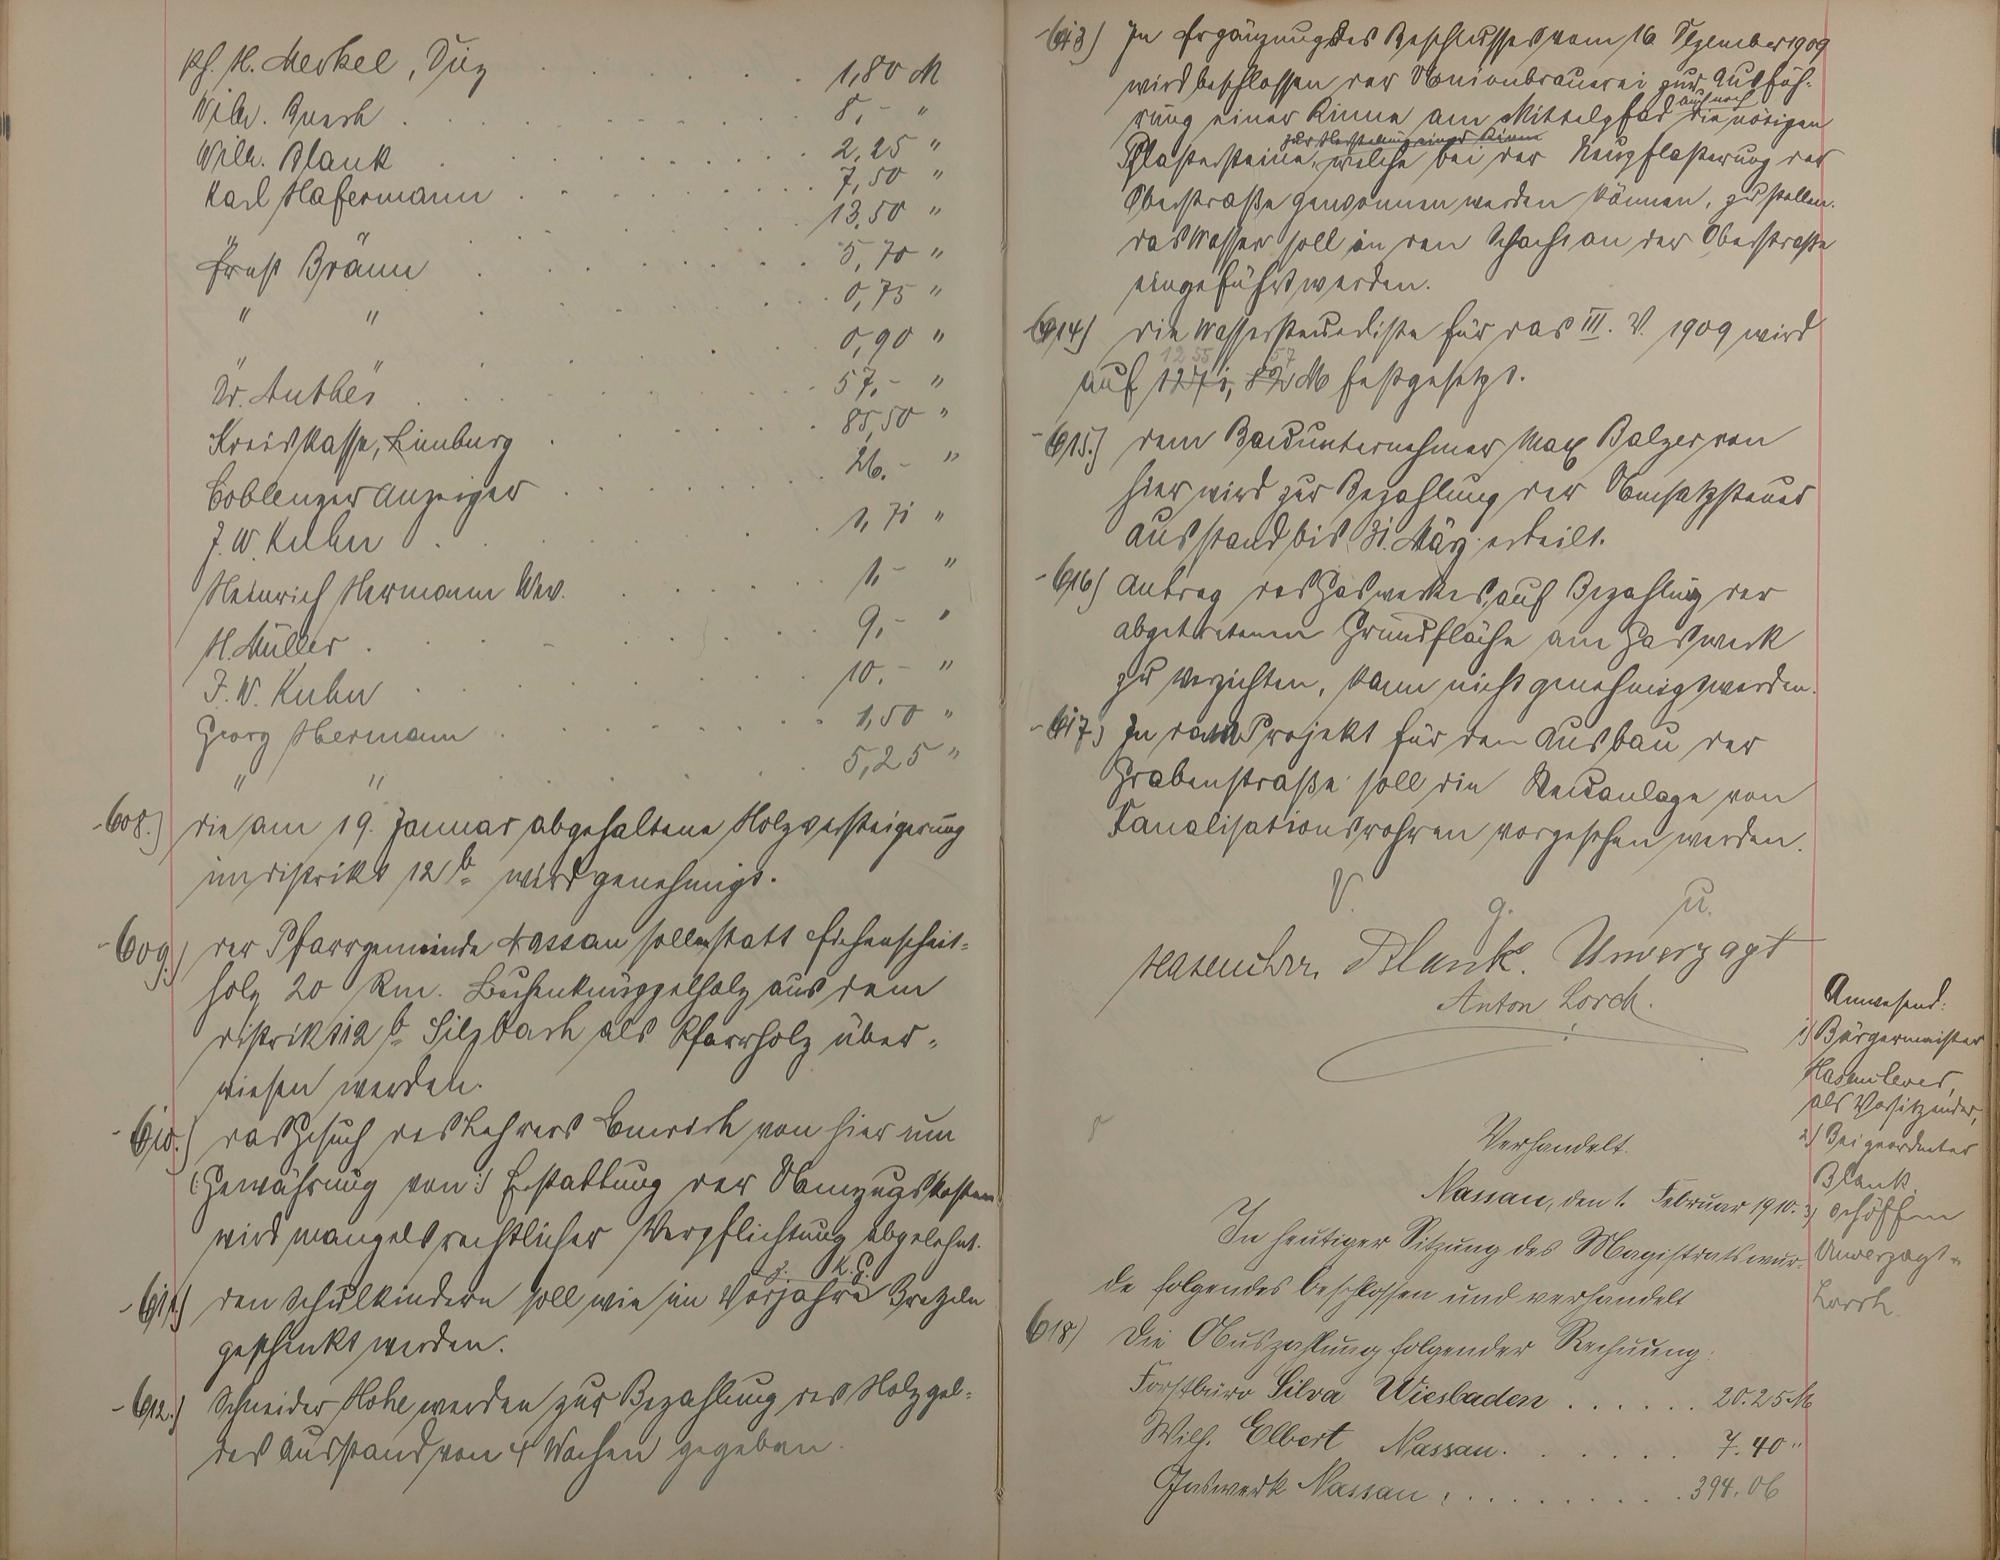 Ph. H. Merkel, Diez . . . . . . . 1,80 M
Wilh. Busch . . . . . . . 8,- "
Wilh. Blank . . . . . . . 2,25 "
Karl Hafermann . . . . . . . 7,50 "
" " . . . . . . . 13,50 "
Ernst Bräun . . . . . . . 5,70 "
" " . . . . . . . 0,75 "
" " . . . . . . . 0,90 "
Dr. Anthes . . . . . . . 57,- "
Kreiskasse, Limburg . . . . . . . 85,50 "
Coblenzer Anzeiger . . . . . . . 26,- "
J. W. Kuhn . . . . . . . 1,71 "
Heinrich Hermann Wwe. . . . . . 1,- "
H. Müller . . . . . . . 9,- "
J. W. Kuhn . . . . . . . 10,- "
Georg Hermann . . . . . . . 1,50 "
" " . . . . . . . 5,25 "
608.) die am 19. Januar abgehaltene Holzversteigerung
im Distrikt 12 b wird genehmigt.
609.) der Pfarrgemeinde Nassau sollen statt Eichenscheit-
holz 20 Rm. Buchenknüppelholz aus dem
Distrikt 12 b Silzbach als Pfarrholz über-
wiesen werden.
610.) das Gesuch des Lehrers Emrich von hier um
(: Gewährung von :) Erstattung der Umzugskosten
wird mangels rechtlicher Verpflichtung abgelehnt.
z. K. G.
611.) den Schulkindern soll wie im Vorjahre Bretzeln
geschenkt werden.
612.) Schneider Hohe werden zur Bezahlung des Holzgel-
des Ausstand von 4 Wochen gegeben.
613) In Ergänzung des Beschlusses vom 16 Dezember 1909
wird beschlossen der Unionbrauerei zur Ausfüh-
auch noch
rung einer Rinne am Mittelpfad die nötigen
zur Herstellung einer Rinne
Pflastersteine, welche bei der Neupflasterung der
Oberstraße gewonnen werden können, zu stellen.
das Wasser soll in den Schacht an der Oberstraße
eingeführt werden.
614) die Wassersteuerliste für das III. V. 1909 wird
1255 57
auf 1271, 82 M festgesetzt.
615.) dem Bauunternehmer Max Balzer von
hier wird zur Bezahlung der Umsatzsteuer
Ausstand bis 31. März erteilt.
616) Antrag des Gaswerkes, auf Bezahlung der
abgetretenen Grundfläche am Gaswerk
zu verzichten, kann nicht genehmigt werden.
617.) In das Projekt für den Ausbau der
Grabenstraße soll die Neuanlage von
Kanalisationsrohren vorgesehen werden.
V. g. u.
Hasenclever. Blank. Unverzagt
Anton Lorch.
Anwesend:
1) Bürgermeister
Hasenclever,
als Vorsitzender,
2) Beigeordneter
Blank.
3) Schöffen
Unverzagt u.
Lorch.
Verhandelt.
Nassau, den 1. Februar 1910.
In heutiger Sitzung des Magistrats wur-
de folgendes beschlossen und verhandelt
618) Die Auszahlung folgender Rechnung:
Forstbüro Silva Wiesbaden . . . . . . 20.25 M
Wilh. Elbert Nassau. . . . . . . 7.40 "
Gaswerk Nassau . . . . . . . . . . 394.06